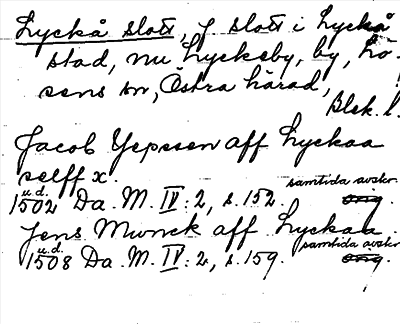 Lyckå slott, f slott i Lyckå
stad, nu Lyckeby, by, Lö-
sens sn, Östra härad,
Blek. l.
Jacob Jepssen aff Lyckaa
selff x.
samtida avskr.
u.d. 1502 Da. M. IV: 2, s. 152. orig.
Jens Munck aff Lyckaa.
samtida avskr.
u.d. 1508 Da. M. IV: 2, s. 159. orig.